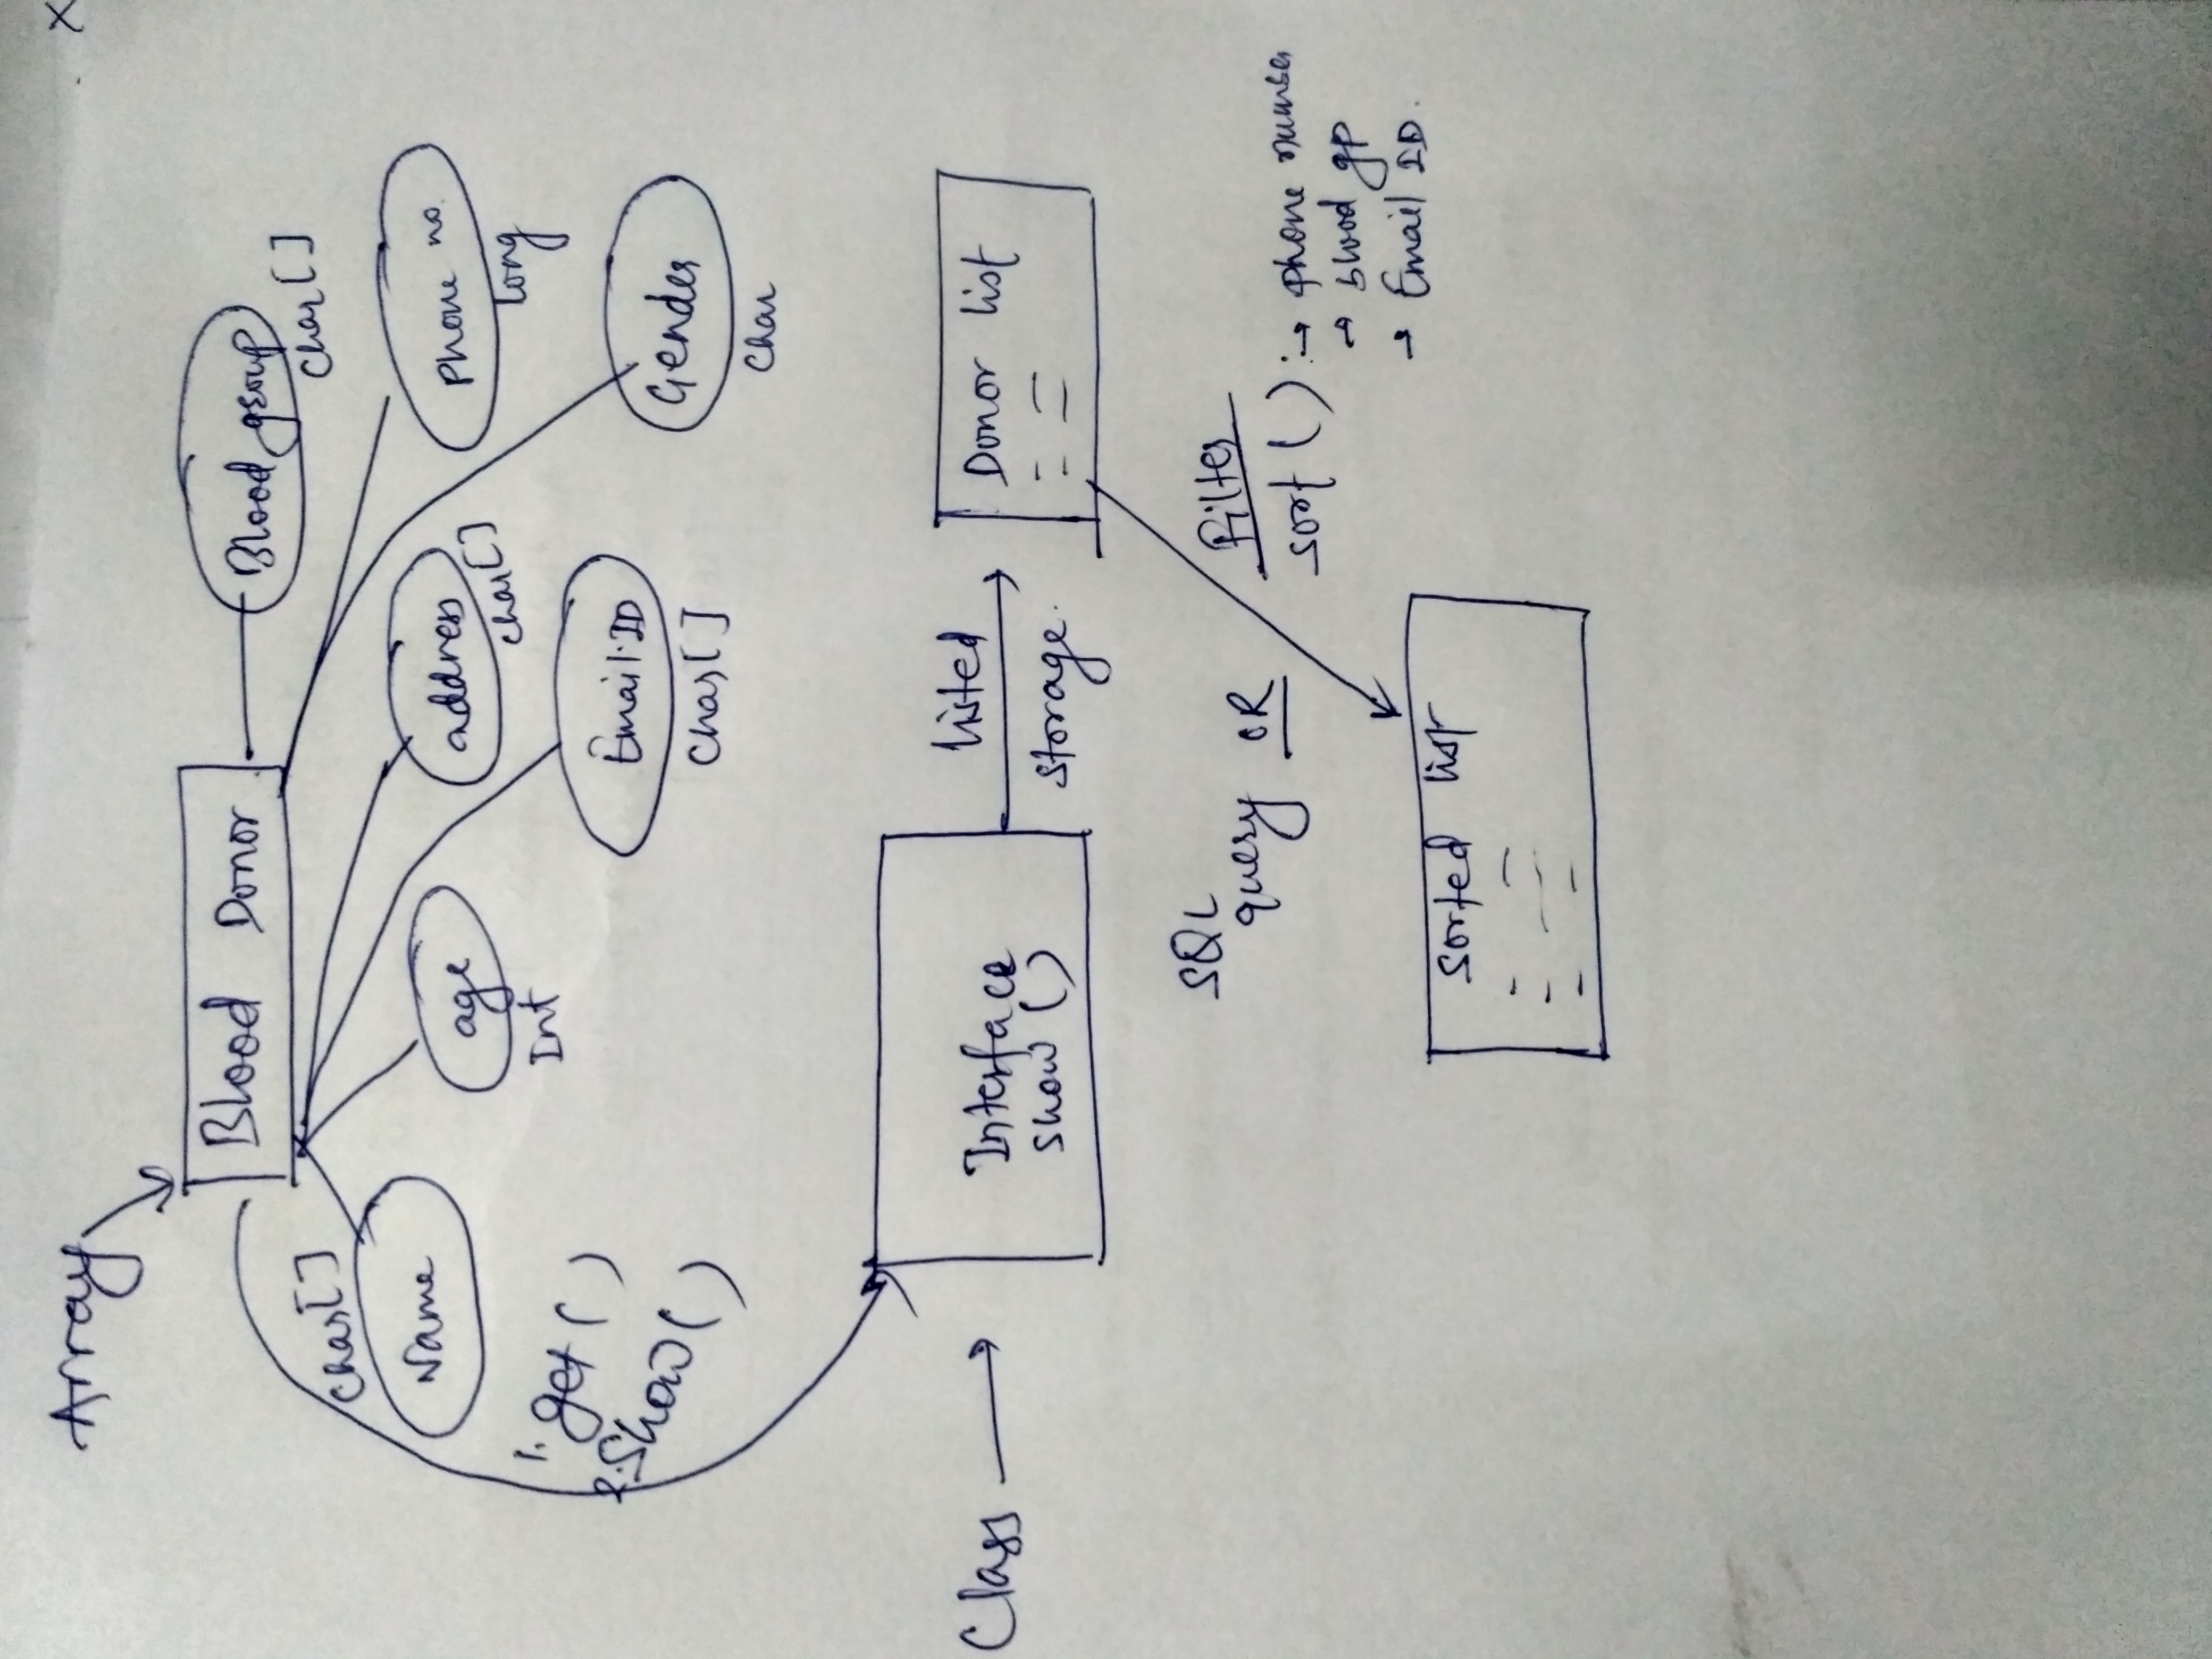 Array
Blood Donor
Blood group
Char[]
Phone no.
long
Gender
Char
address
char[]
Email.ID
Char[]
age
Int
Char[]
Name
1. get()
2. Show()
Class
Interface
Show()
listed
storage.
Donor list
SQL
query OR
Filter
sort() :→ phone number
→ blood gp
→ Email ID.
Sorted list